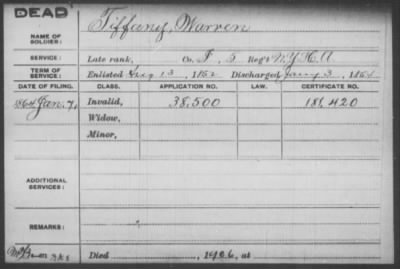 DEAD
Tiffany, Warren
NAME OF SOLDIER:
SERVICE: Late rank, Co. F, 5 Reg't N.Y.H.A.
TERM OF SERVICE: Enlisted Aug 13, 1862 Discharged Jany 3, 1864
DATE OF FILING. CLASS. APPLICATION NO. LAW. CERTIFICATE NO.
1864 Jan. 7, Invalid, 38,500 186,420
Widow,
Minor,
ADDITIONAL SERVICES:
REMARKS:
Died 1906, at